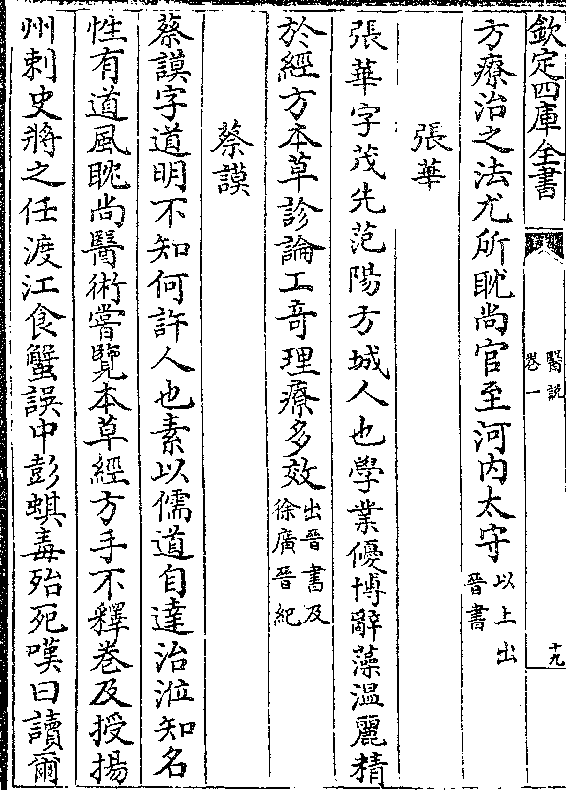 欽定四庫全書
醫說
卷一
十九
方療治之法尤所耽尚官至河内太守以上出晉書
張華
張華字茂先范陽方城人也學業優博辭藻温麗精
於經方本草診論工奇理療多效出晉書及徐廣晉紀
蔡謨
蔡謨字道明不知何許人也素以儒道自達治涖知名
性有道風耽尚醫術嘗覽本草經方手不釋卷及授揚
州刺史將之任渡江食蟹誤中彭蜞毒殆死嘆曰讀爾